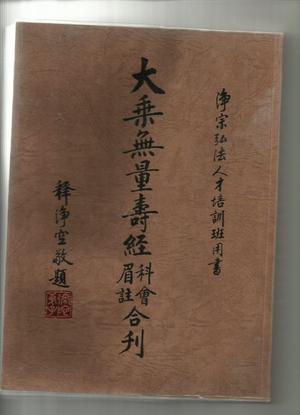 淨宗弘法人才培訓班用書
大乗無量壽經科會眉註合刊
釋淨空敬題